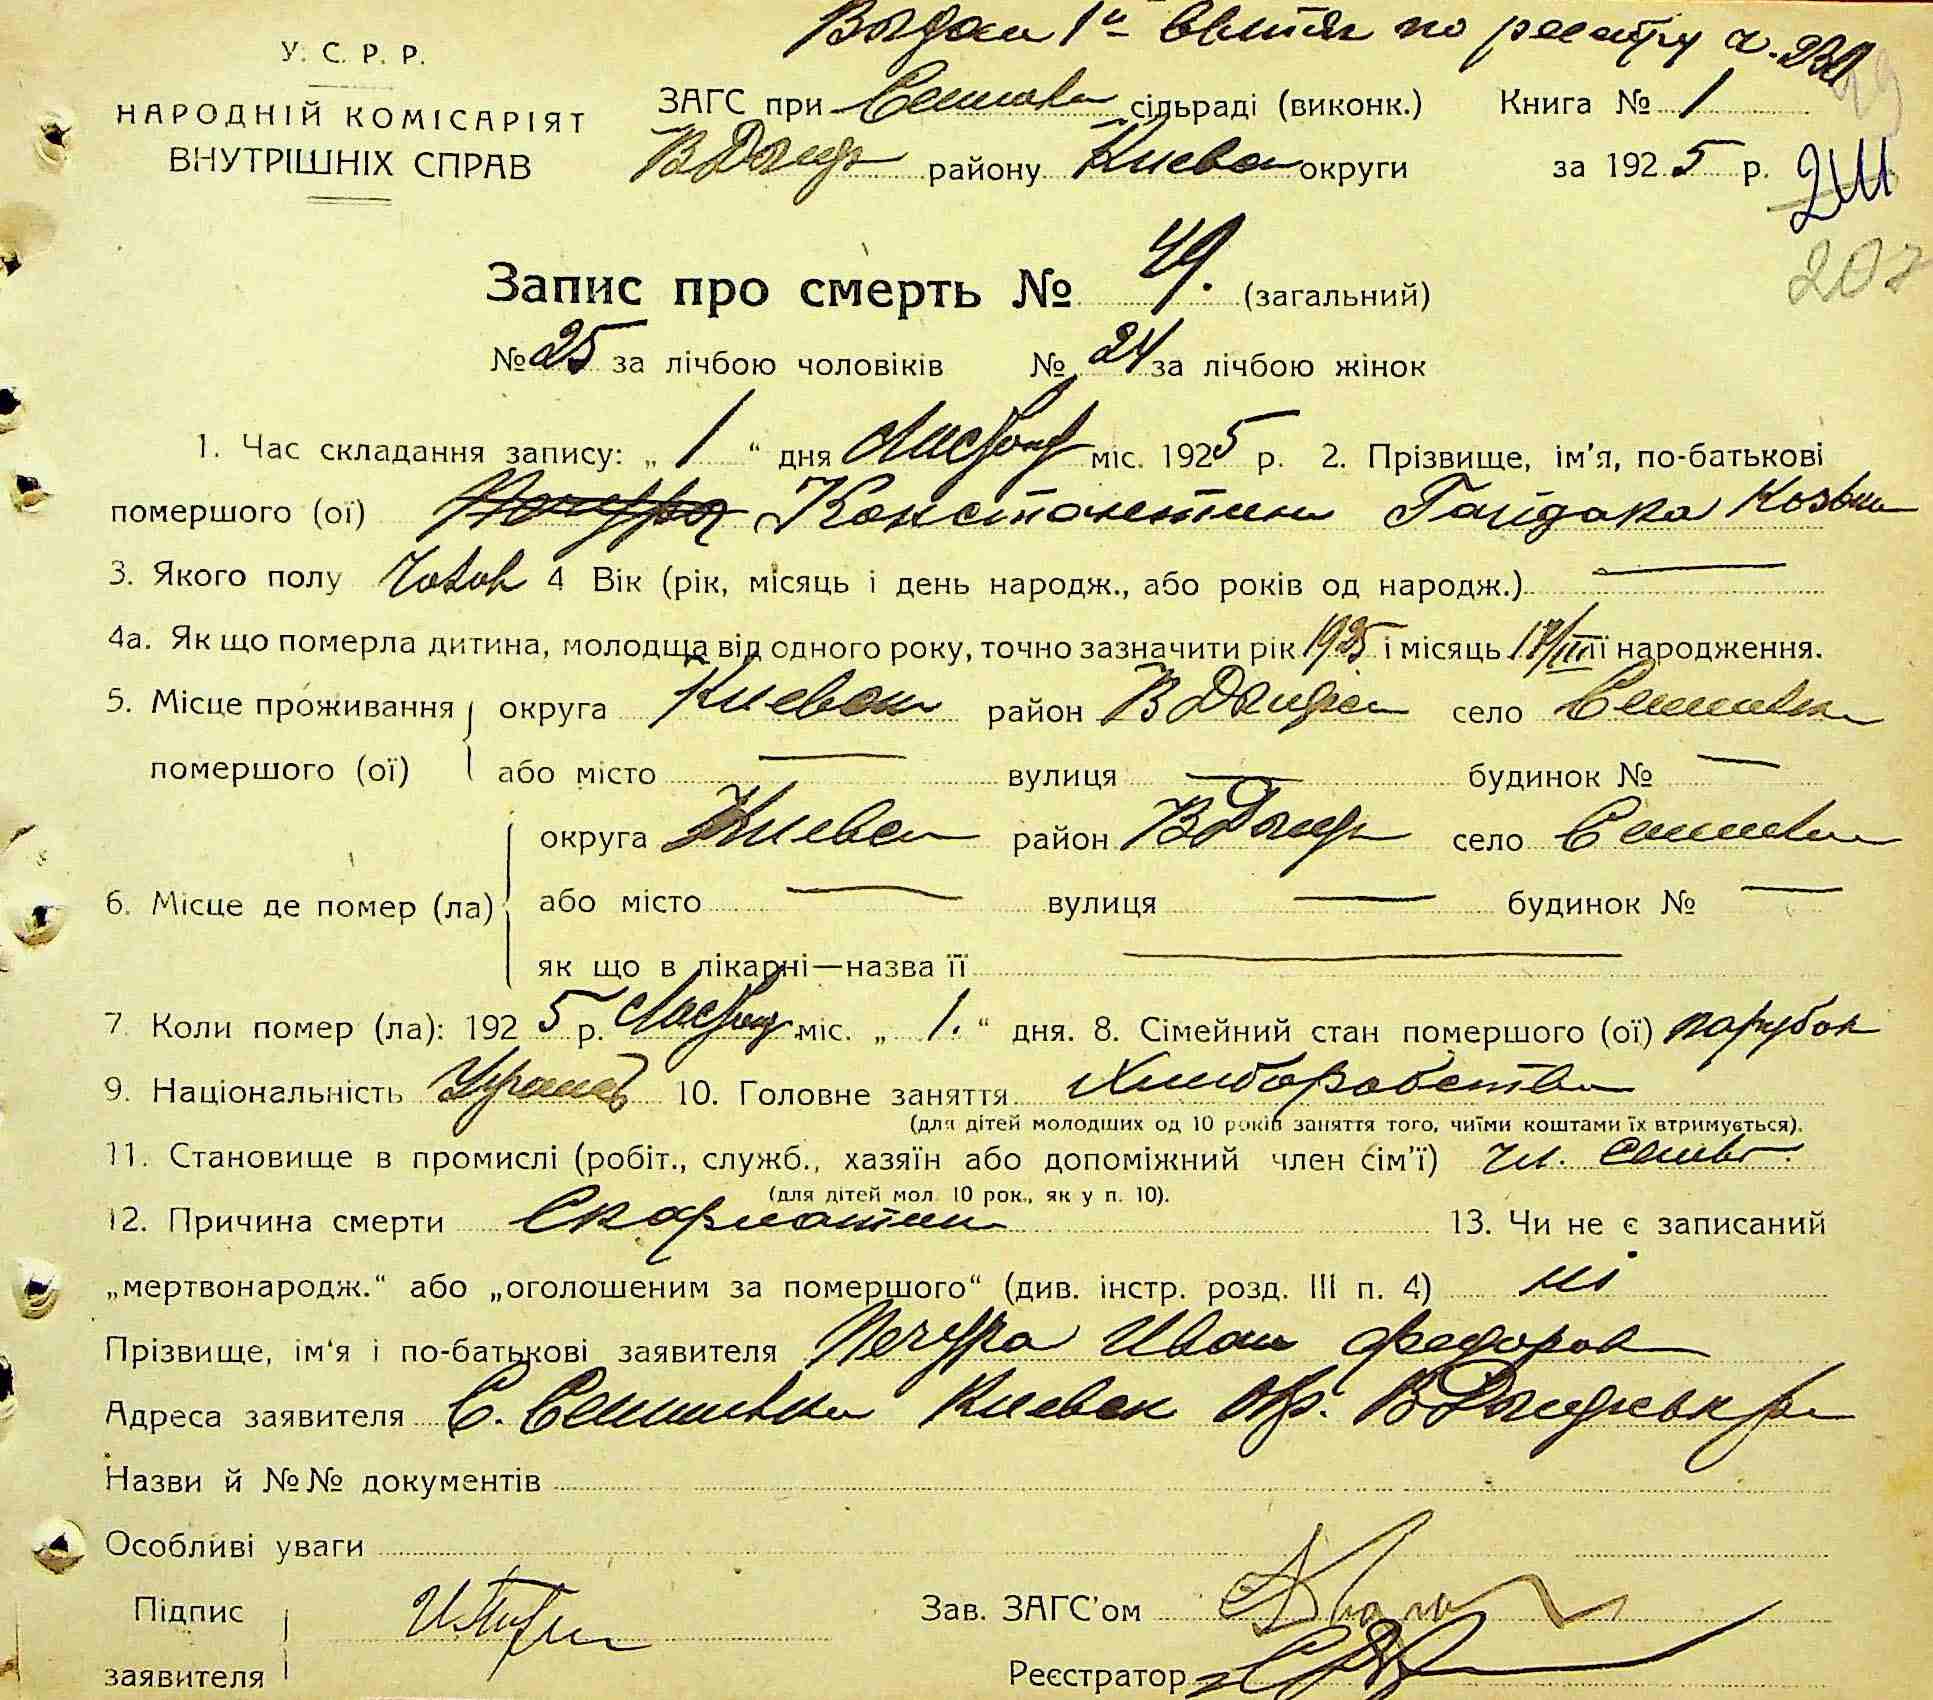 Выдан 1й витяг по реестру ч. 230
У. С. Р. Р.
НАРОДНІЙ КОМІСАРІЯТ
ВНУТРІШНІХ СПРАВ
ЗАГС при сільраді (виконк.) Книга № 1
В Дымер району Киевск округи за 1925 р.
211
207
Запис про смерть № 49. (загальний)
№ 25 за лічбою чоловіків № 24 за лічбою жінок
1. Час складання запису: „ 1 “ дня Листопад міс. 1925 р. 2. Прізвище, ім'я, по-батькові
помершого (ої) Константин Гайдака Козьми
3. Якого полу Чолов 4 Вік (рік, місяць і день народж., або років од народж.) —
4а. Як що померла дитина, молодща від одного року, точно зазначити рік 1925 і місяць 17/III її народження.
5. Місце проживання округа Киевск район В Дымерс село
помершого (ої) або місто — вулиця — будинок № —
округа Киевск район В Дымер село
6. Місце де помер (ла) або місто — вулиця — будинок № —
як що в лікарні—назва її —
7. Коли помер (ла): 1925 р. Листопад міс. „ 1. “ дня. 8. Сімейний стан помершого (ої) парубок
9. Національність Украінець 10. Головне заняття Хлиборобство
(для дітей молодших од 10 років заняття того, чиїми коштами їх втримується).
11. Становище в промислі (робіт., служб., хазяїн або допоміжний член сім'ї) чл.
(для дітей мол. 10 рок., як у п. 10).
12. Причина смерти Скарлатина 13. Чи не є записаний
„мертвонародж.“ або „оголошеним за помершого“ (див. інстр. розд. III п. 4) ні
Прізвище, ім'я і по-батькові заявителя Печура Иван Федоров
Адреса заявителя С. Киевск Окр. В Дымерськ р
Назви й №№ документів
Особливі уваги
Підпис Зав. ЗАГС'ом
заявителя Реєстратор